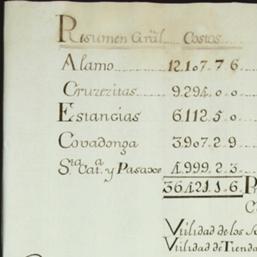 Resumen Grãl Costos
Alamo 12.107.7.6
Cruzezitas 9.294.0.0
Estancias 6.112.5.0
Covadonga 3.907.2.9
Sta. Cata. y Pasaxe 4.999.2.3
36.421.1.6
Vtilidad de los
Vtilidad de Tienda